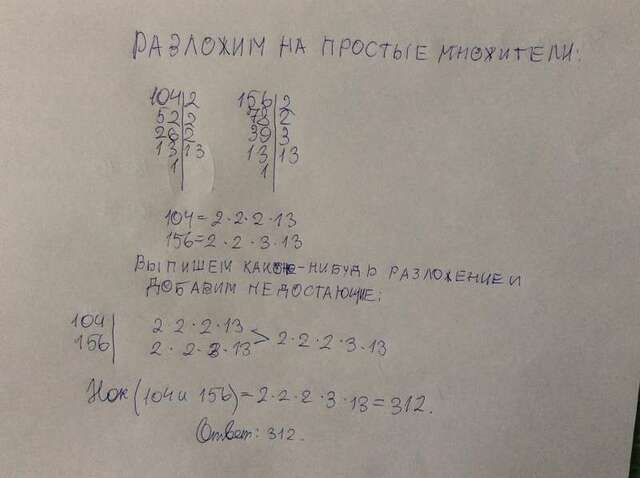 РАЗЛОЖИМ НА ПРОСТЫЕ МНОЖИТЕЛИ:
104|2 156|2
52|2 78|2
26|2 39|3
13|13 13|13
1| 1|
104=2·2·2·13
156=2·2·3·13
ВЫПИШЕМ КАКОЕ-НИБУДЬ РАЗЛОЖЕНИЕ И
ДОБАВИМ НЕДОСТАЮЩИЕ:
104| 2 2·2·13 > 2·2·2·3·13
156| 2·2·3·13
Нок (104 и 156)=2·2·2·3·13=312.
Ответ: 312.